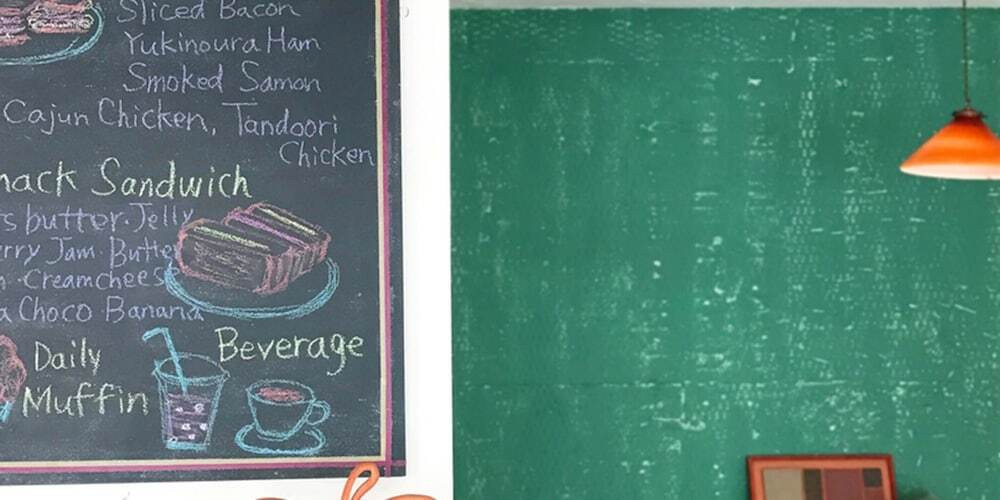 Sliced Bacon
Yukinoura Ham
Smoked Samon
Cajun Chicken, Tandoori
Chicken
nack Sandwich
s butter·Jelly
rry Jam·Butte
· Creamcheese
a Choco Banana
Daily
Muffin
Beverage